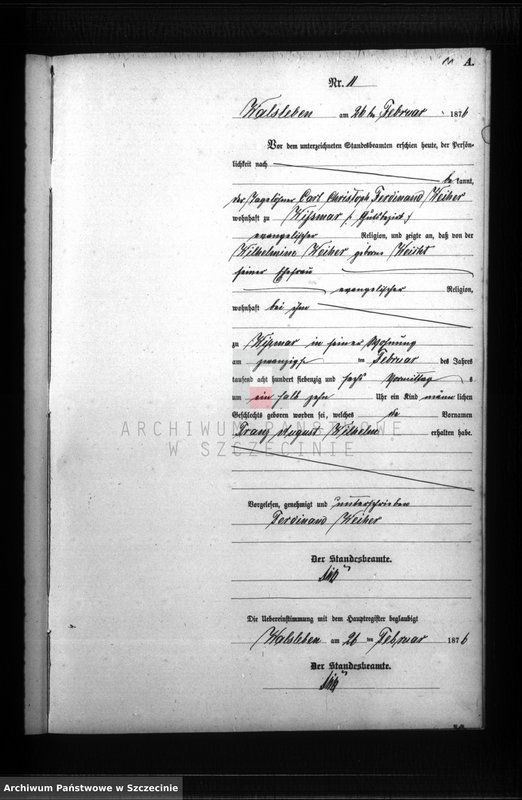 A.
Nr. 11
Walsleben am 26ten Februar 1876
Vor dem unterzeichneten Standesbeamten erschien heute, der Persön-
lichkeit nach
be kannt,
der Tagelöhner Carl Christoph Ferdinand Weiher
wohnhaft zu Wißmar
evangelischer Religion, und zeigte an, daß von der
Wilhelmine Weiher geborne
seiner Ehefrau
evangelischer Religion,
wohnhaft bei ihm
zu Wißmar in seiner Wohnung
am zwanzigs ten Februar des Jahres
tausend acht hundert siebenzig und sechs Vormittag s
um ein halb zehn Uhr ein Kind männlichen
Geschlechts geboren worden sei, welches die Vornamen
Franz August Wilhelm erhalten habe.
ARCHIWUM PAŃSTWOWE
W SZCZECINIE
Vorgelesen, genehmigt und unterschrieben
Ferdinand Weiher
Der Standesbeamte.
Die Uebereinstimmung mit dem Hauptregister beglaubigt
Walsleben am 26 ten Februar 1876
Der Standesbeamte.
Archiwum Państwowe w Szczecinie